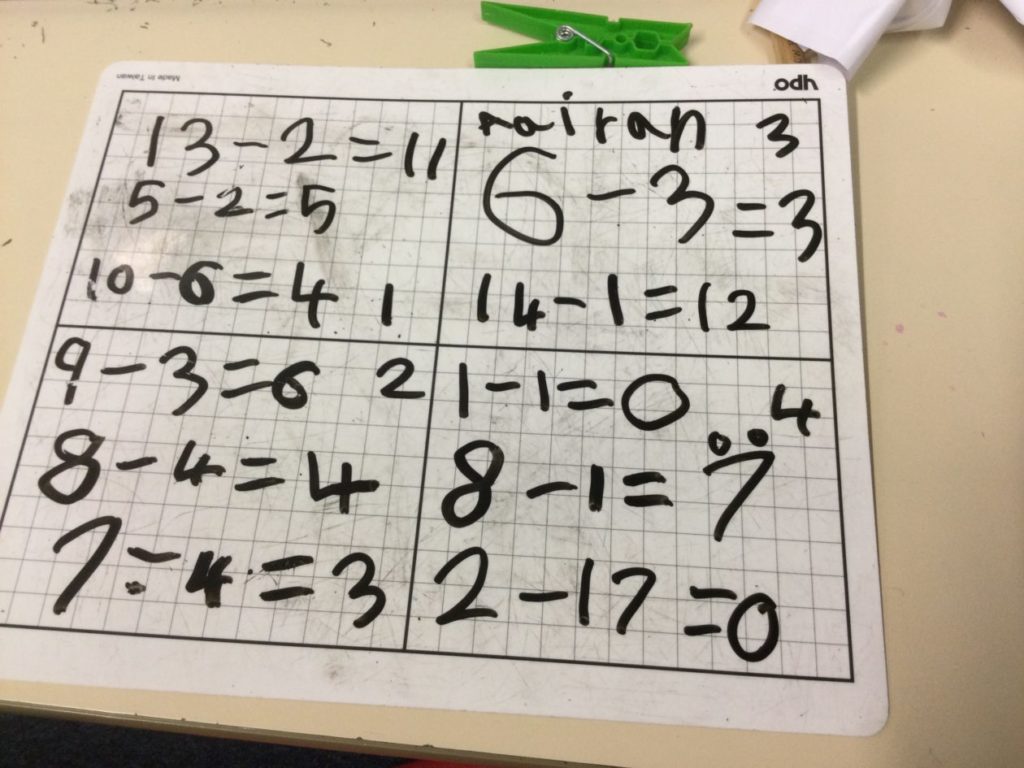 Made in Taiwan
odh
13-2=11
5-2=5
10-6=4 1
rairan 3
6-3=3
14-1=12
9-3=6 2
8-4=4
7-4=3
1-1=0 4
8-1=7
2-17=0